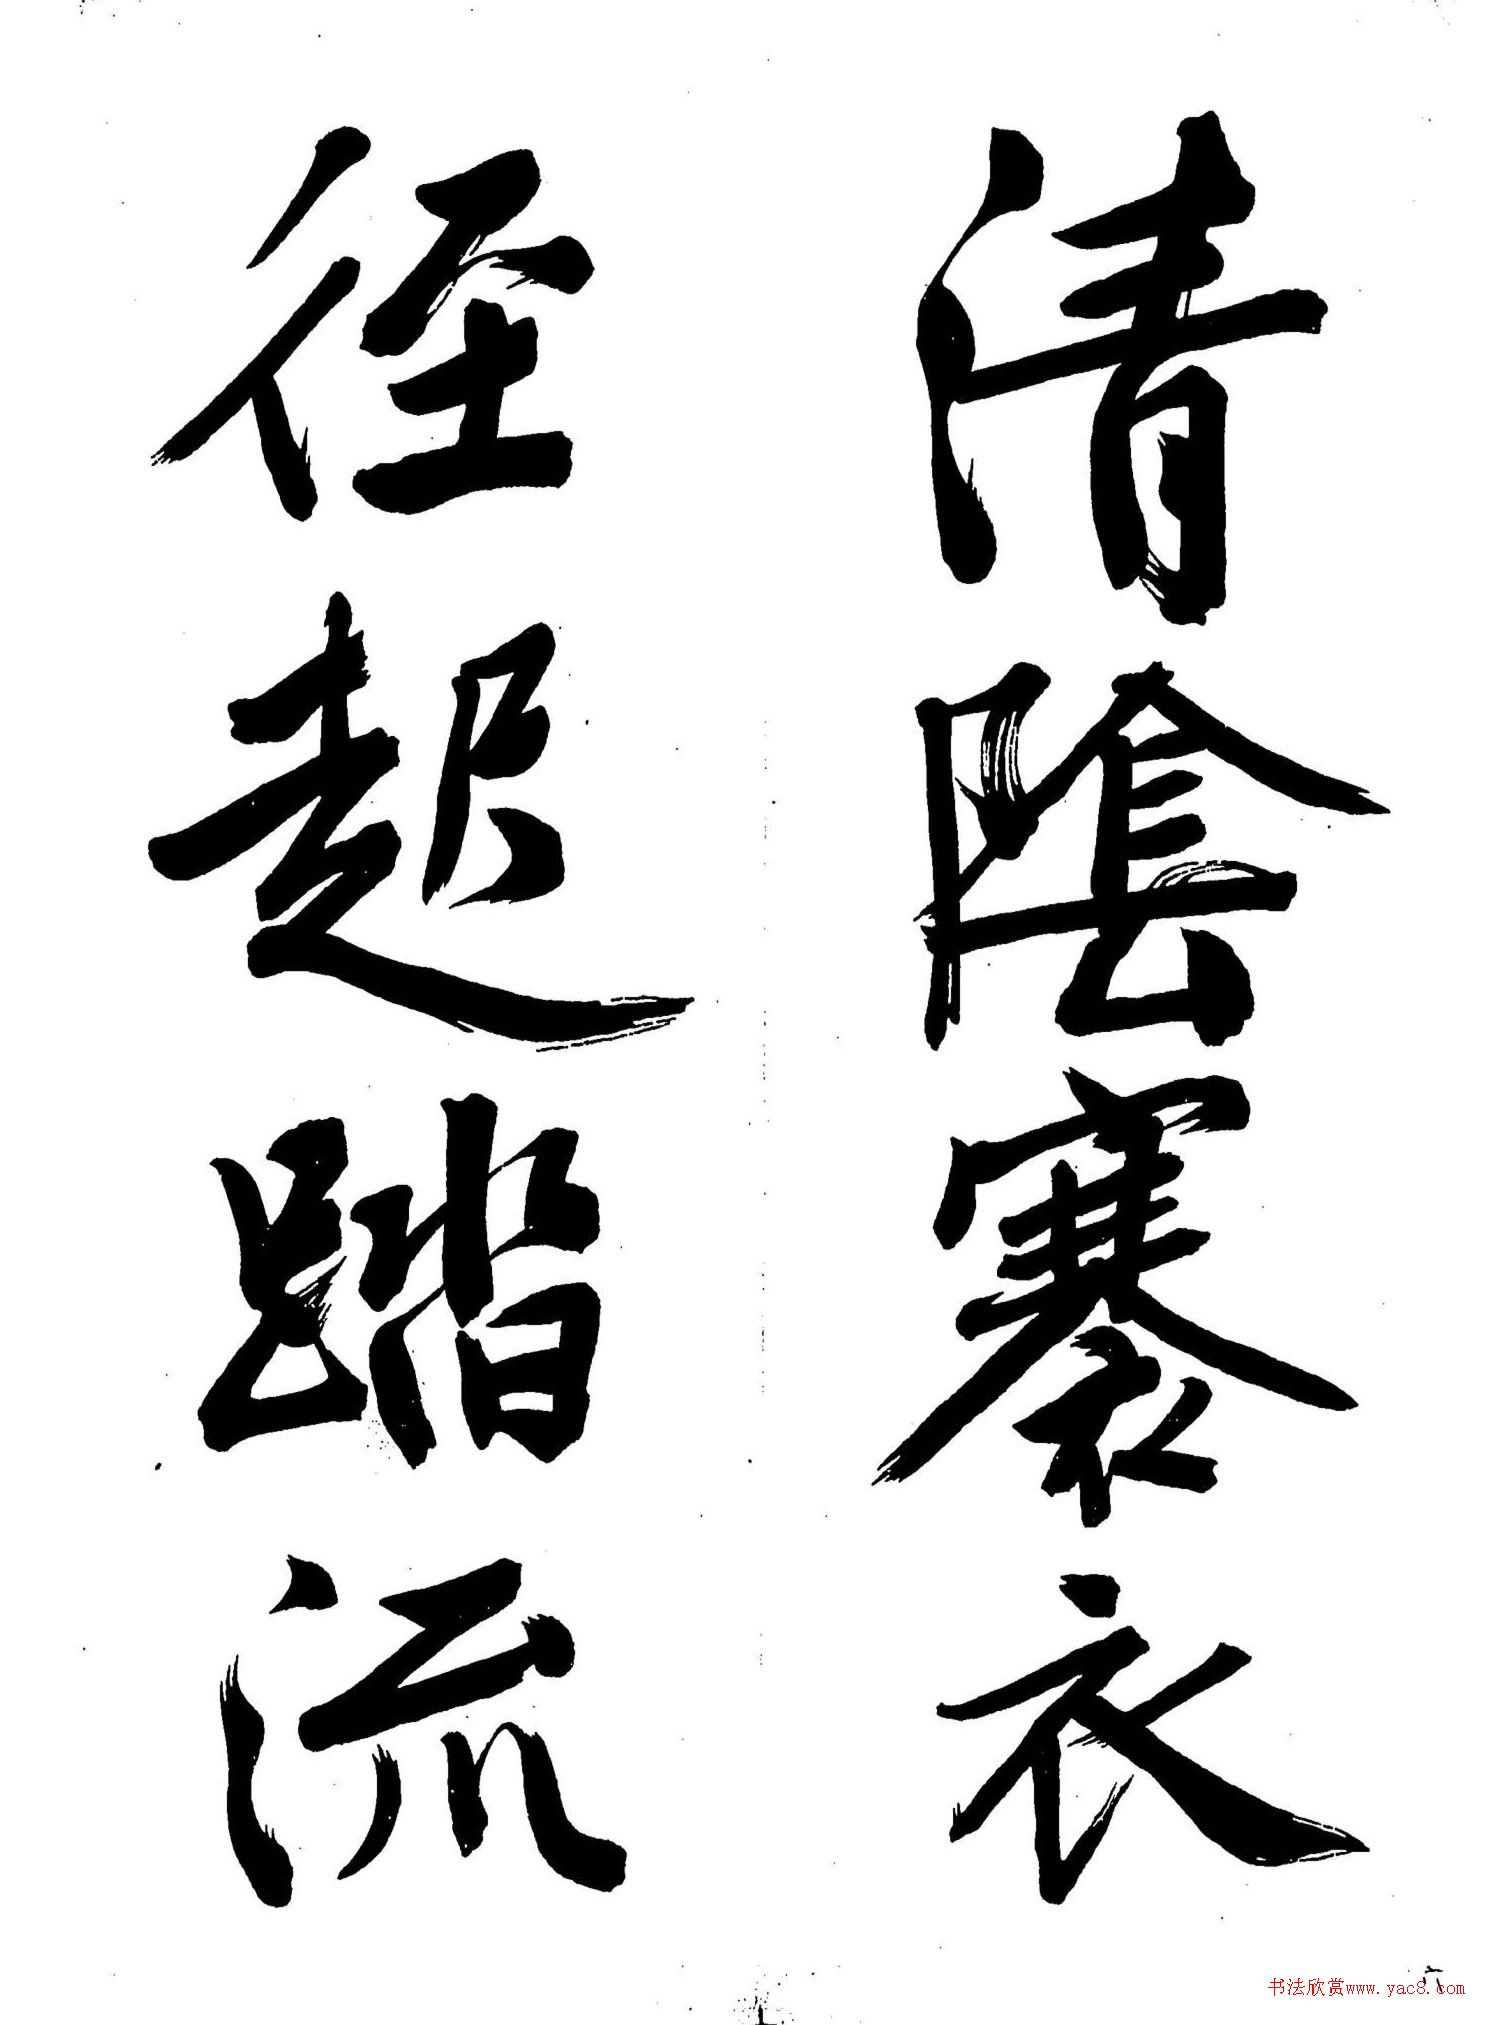 清陰褰衣
径起踏流
六
书法欣赏www.yac8.com